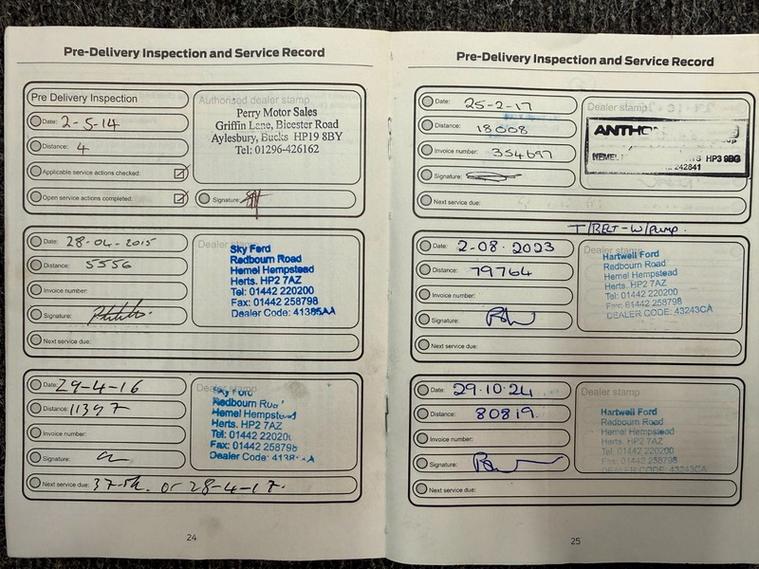 Pre-Delivery Inspection and Service Record
Pre Delivery Inspection
Date: 2-5-14
Distance: 4
Applicable service actions checked:
Open service actions completed:
Authorised dealer stamp
Perry Motor Sales
Griffin Lane, Bicester Road
Aylesbury, Bucks HP19 8BY
Tel: 01296-426162
Signature:
Date: 28-04-2015
Distance: 5556
Invoice number:
Signature:
Next service due:
Dealer
Sky Ford
Redbourn Road
Hemel Hempstead
Herts. HP2 7AZ
Tel: 01442 220200
Fax: 01442 258798
Dealer Code: 41385AA
Date: 29-4-16
Distance: 11397
Invoice number:
Signature:
Next service due: 37.5k. or 28-4-17.
Dealer stamp
Sky Ford
Redbourn
Hemel Hempstead
Herts. HP2 7AZ
Tel: 01442 22020
Fax: 01442 258798
Dealer Code: 4138 A
24
Pre-Delivery Inspection and Service Record
Date: 25-2-17
Distance: 18008
Invoice number: 354697
Signature:
Next service due:
Dealer stamp
HP3 9BG
242841
T/BELT-W/Pump.
Date: 2-08-2023
Distance: 79764
Invoice number:
Signature:
Next service due:
Dealer stamp
Hartwell Ford
Redbourn Road
Hemel Hempstead
Herts. HP2 7AZ
Tel: 01442 220200
Fax: 01442 258798
DEALER CODE: 43243CA
Date: 29.10.24
Distance: 80819.
Invoice number:
Signature:
Next service due:
Dealer stamp
Hartwell Ford
Redbourn Road
Hemel Hempstead
Herts. HP2 7AZ
Tel: 01442 220200
Fax: 01442 258798
DEALER CODE: 43243CA
25